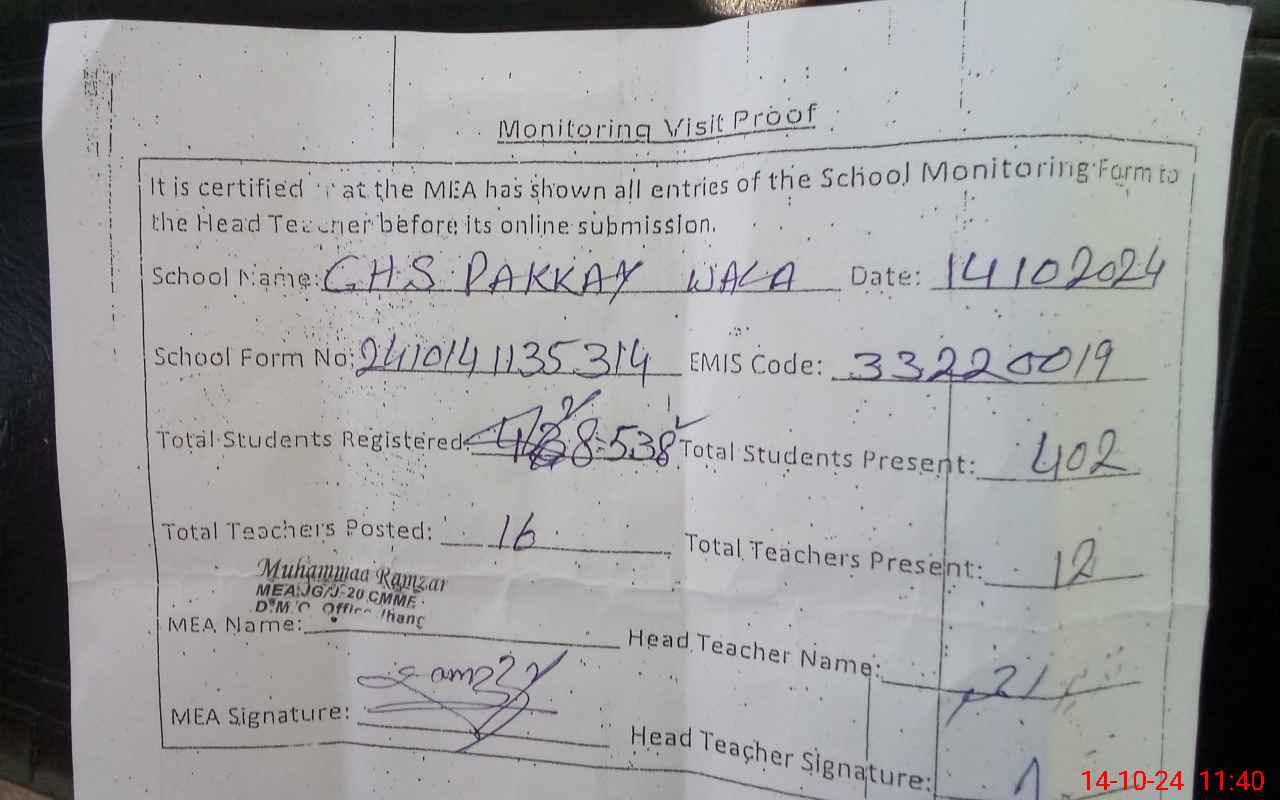 Monitoring Visit Proof
It is certified at the MEA has shown all entries of the School Monitoring Form to
the Head Teacher before its online submission.
School Name: G.H.S PAKKAY WALA Date: 14 10 2024
School Form No: 241014 1135314 EMIS Code: 33220019
Total Students Registered: 538 Total Students Present: 402
Total Teachers Posted: 16 Total Teachers Present: 12
Muhammad Ramzan
MEA JG/J-20 CMME
D.M.O Office Jhang
MEA Name: Head Teacher Name:
MEA Signature: Head Teacher Signature:
14-10-24 11:40